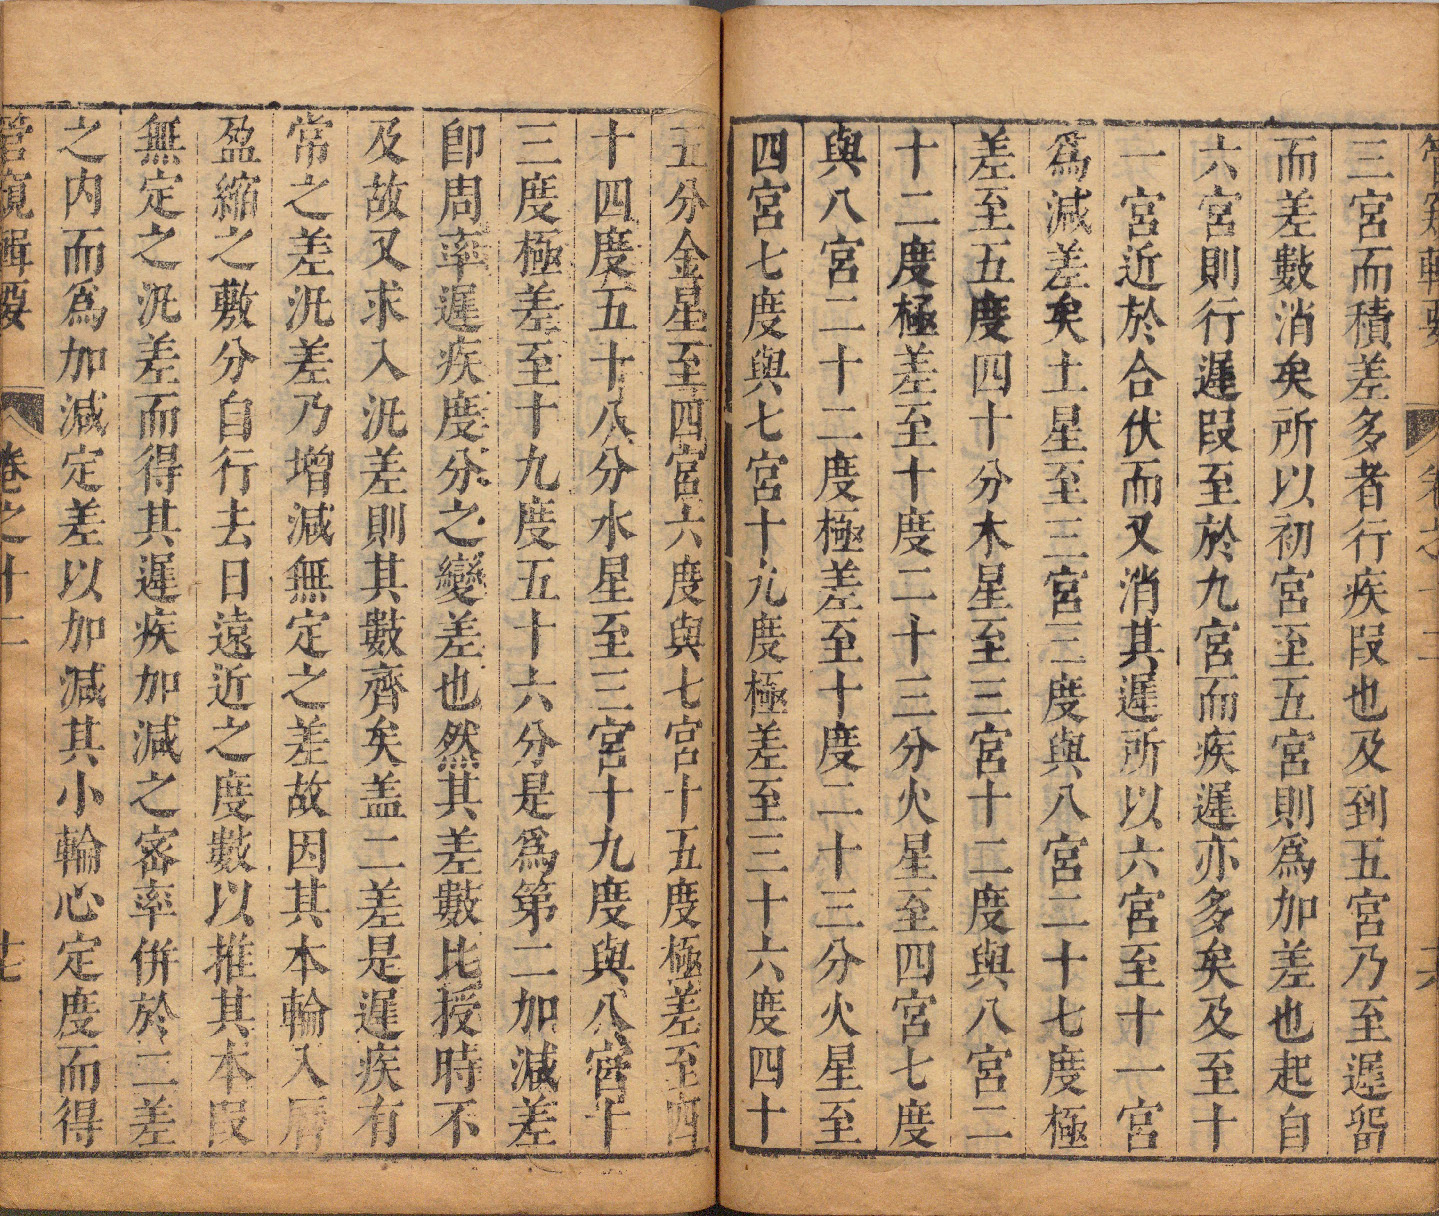 管窺輯要 卷之十二 十六
三宮而積差多者行疾叚也及到五宮乃至遲畱
而差數消矣所以初宮至五宮則爲加差也起自
六宮則行遲叚至於九宮而疾遲亦多矣及至十
一宮近於合伏而又消其遲所以六宮至十一宮
爲減差矣土星至三宮三度與八宮二十七度極
差至五度四十分木星至三宮十二度與八宮二
十二度極差至十度二十三分火星至四宮七度
與八宮二十二度極差至十度二十三分火星至
四宮七度與七宮十九度極差至三十六度四十
五分金星至四宮六度與七宮十五度極差至四
十四度五十八分水星至三宮十九度與八宮十
三度極差至十九度五十六分是爲第二加減差
卽周率遲疾度分之變差也然其差數比授時不
及故又求入汎差則其數齊矣盖二差是遲疾有
常之差汎差乃增減無定之差故因其本輪入曆
盈縮之數分自行去日遠近之度數以推其本叚
無定之汎差而得其遲疾加減之密率併於二差
之内而爲加減定差以加減其小輪心定度而得
管窺輯要 卷之十二 十七